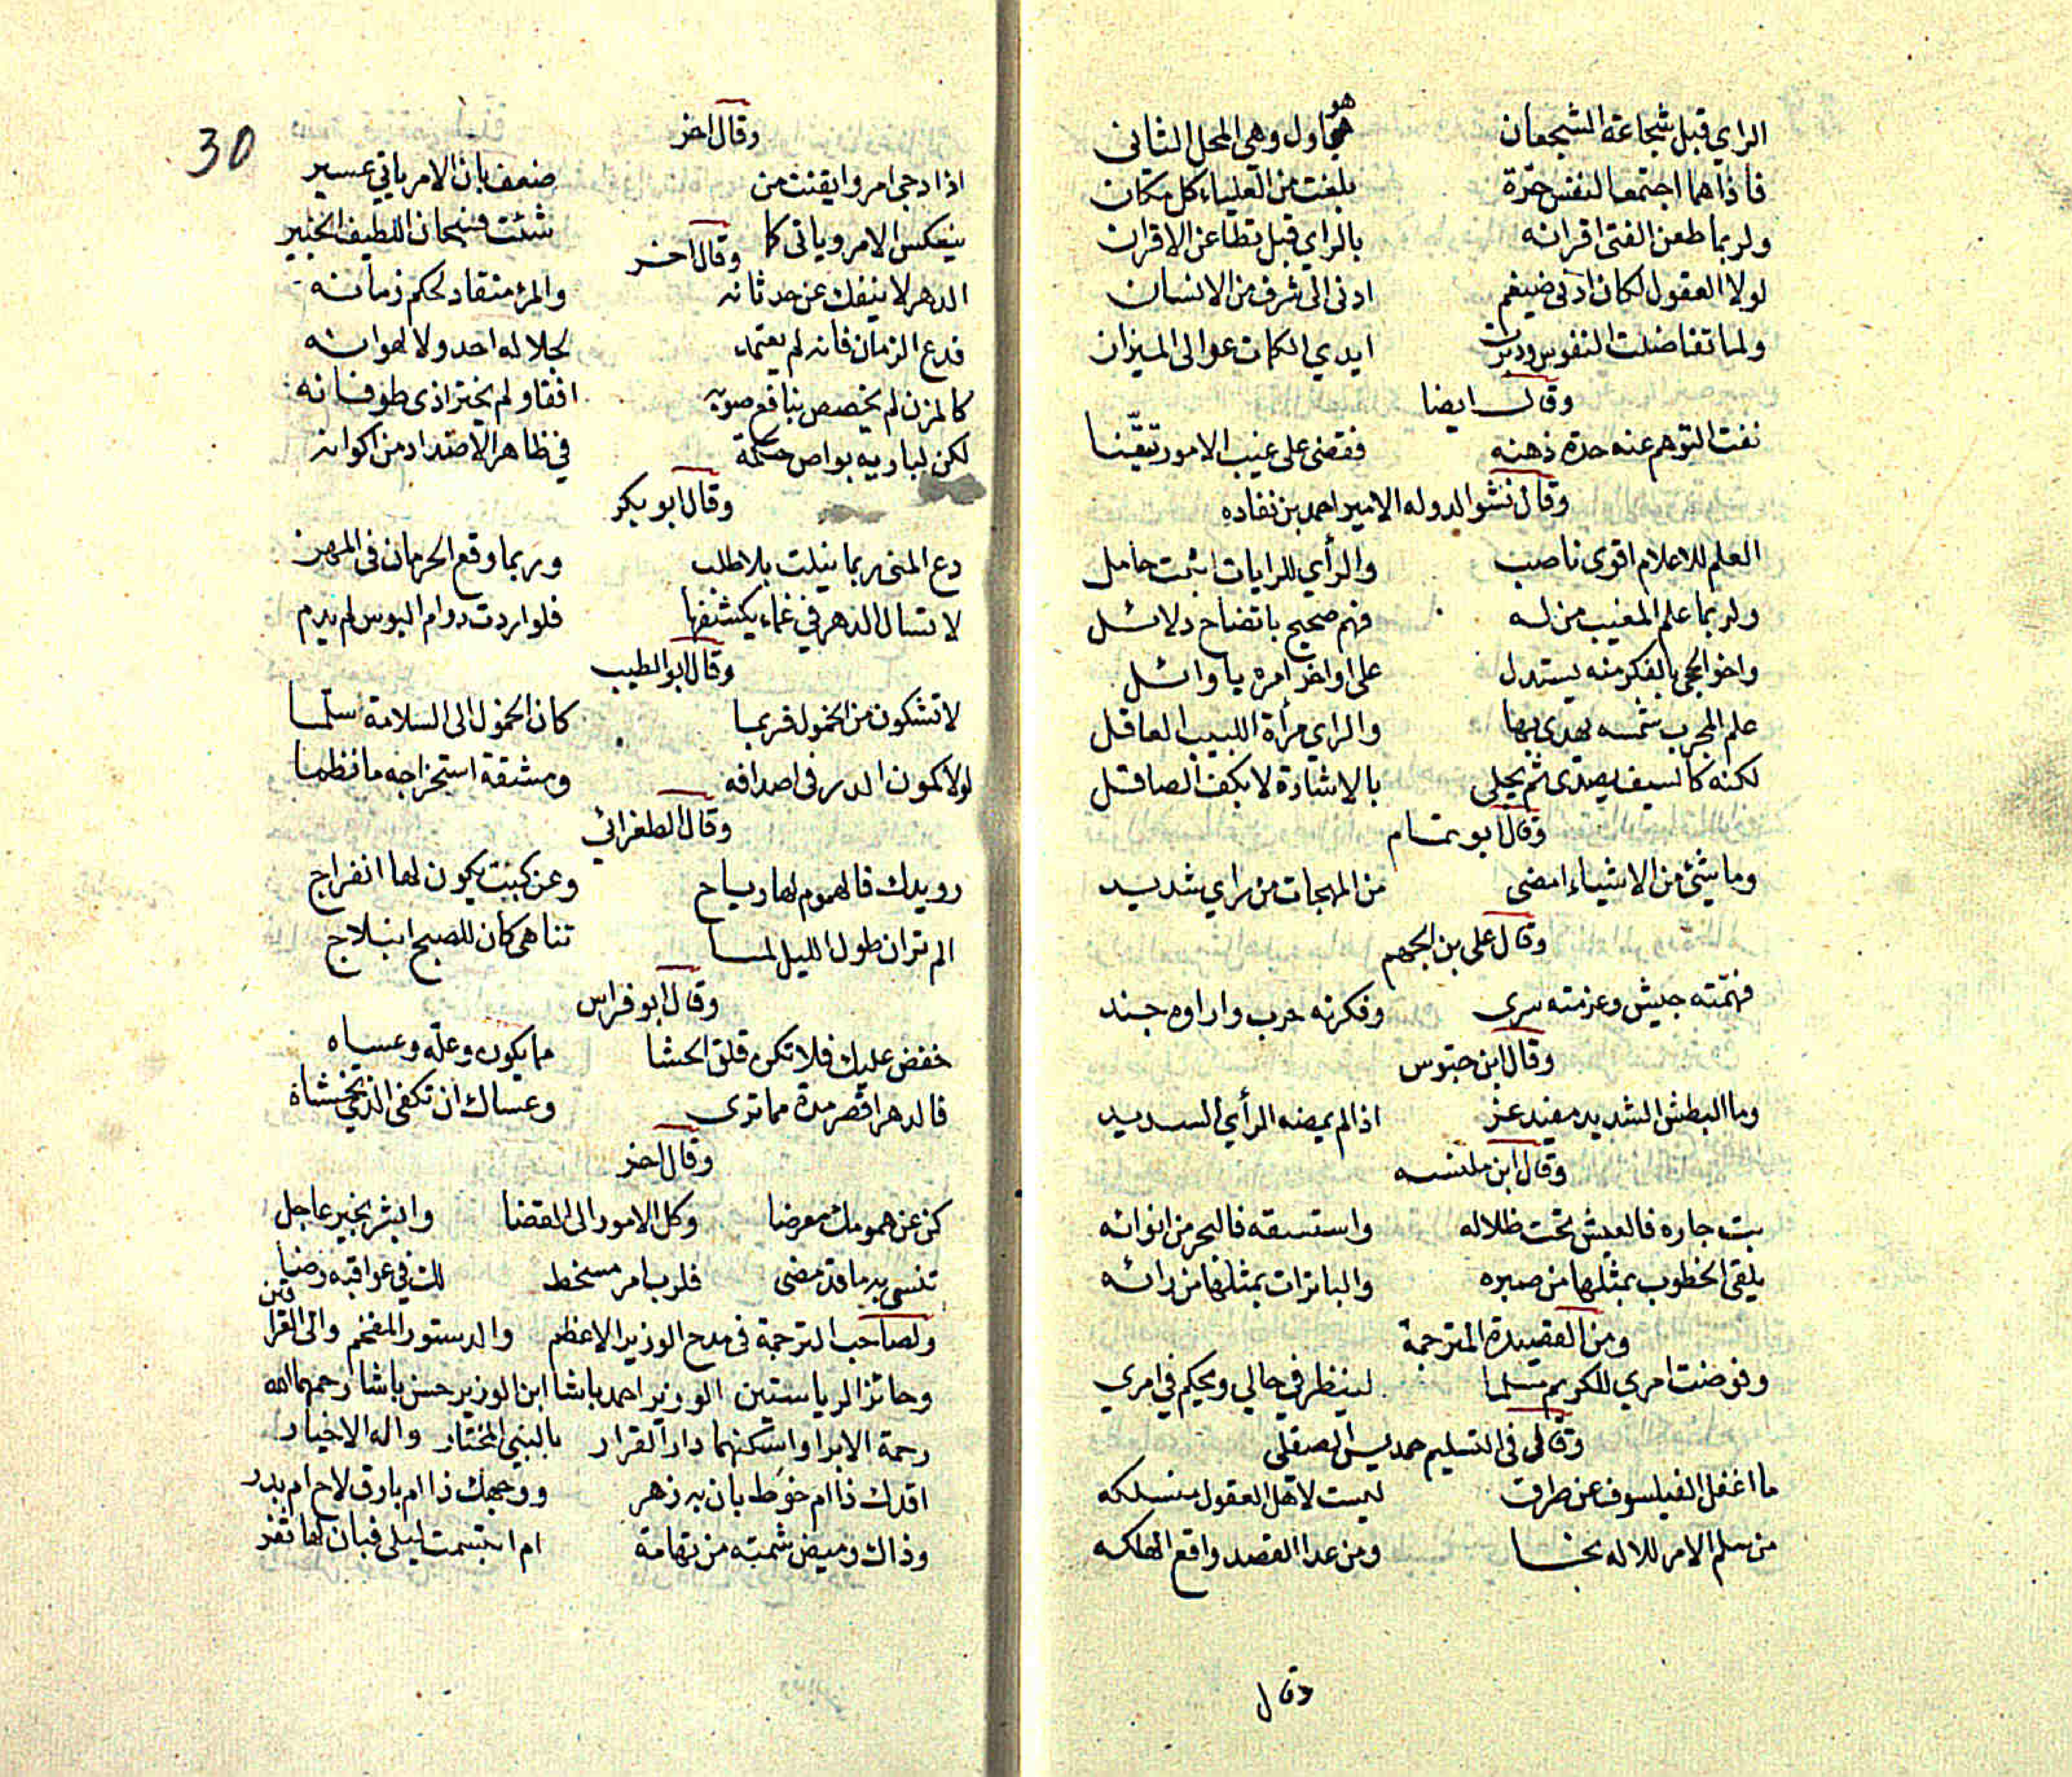 الراي قبل شجاعة الشجعان هو اول وهي المحل الثاني
فاذا هما اجتمعا لنفس حرة بلغت من العلياء كل مكان
ولربما طعن الفتى اقرانه بالراي قبل تطاعن الاقران
لولا العقول لكان ادنى ضيغم ادنى الى شرف من الانسان
ولما تفاضلت النفوس ودبرت ايدي الكمات عوالى الميزان
وقال ايضا
نفت التوهم عنه حدة ذهنه فقضى على غيب الامور تيقّنا
وقال نشو الدوله الامير احمد بن نفاده
العلم للاعلام اقوى ناصب والرأي للرايات اثبت حامل
ولربما علم المغيب من له فهم صحيح باتضاح دلائل
واخو الحجى بالفكر منه يستدل على اواخر امره باوائل
علم المجرب شمسه يهدى بها والراي مرأة اللبيب العاقل
لكنه كالسيف يصدى ثم يجلى بالاشارة لا بكف الصاقل
وقال ابو تمام
وما شئ من الاشياء امضى من المهجات من راي شديد
وقال على بن الجهم
فهمّته جيش وعزمته سرى وفكرته حرب واراوه جند
وقال ابن حيوس
وما البطش الشديد مفيد عز اذا لم يمضه الرأي السديد
وقال ابن
بت جاره فالعيش تحت ظلاله واستسقه فالبحر من انوائه
يلقى الخطوب بمثلها من صبره والباترات بمثلها من رائه
ومن القصيدة المترجمة
وفوضت امري للكريم مسلما لينظر في حالي ويحكم في امري
وقال في التسليم حمديس الصقلى
ما اغفل الفيلسوف عن طرق ليست لاهل العقول منسلكه
من سلم الامر للاله نجا ومن عدا القصد واقع الهلكه
وقال
30
وقال اخر
اذا دجى امر وايقنت من ضعف بان الامر ياتي عسير
ينعكس الامر وياتى كما شئت فسبحان اللطيف الخبير
وقال اخر
الدهر لا ينفك عن حدثانه والمرء منقاد لحكم زمانه
فدع الزمان فانه لم يعتمد لجلاله احد ولا لهوانه
كالمزن لم يخصص بنافع صوبه افقا ولم يختر اذى طوفانه
لكن لباريه بواص حكمة في ظاهر الاضداد من اكوانه
وقال ابو بكر
دع المنى ربما نيلت بلا طلب وربما وقع الحرمان في المهن
لا تسال الدهر في غماء يكشفها فلو اردت دوام البوس لم يدم
وقال ابو الطيب
لا تشكون من الخمول فربما كان الخمول الى السلامة سلّما
لولا كمون الدر في اصدافه ومشقة استخراجه ما نظما
وقال الطغرائي
رويدك فالهموم لها رياح وعن كبت يكون لها انفراج
الم تر ان طول الليل لما تناهى كان للصبح انبلاج
وقال ابو فراس
خفض عليك فلا تكن قلق الحشا مما يكون وعلّه وعساه
فالدهر اقصر مدة مما ترى وعساك ان تكفى الذي تخشاه
وقال اخر
كن عن همومك معرضا وكل الامور الى القضا وابشر بخير عاجل
تنسى به ما قد مضى فلرب امر مسخط لك في عواقبه رضا
ولصاحب الترجمة في مدح الوزير الاعظم والدستور المفخم والى القرا قين
وحائز الرياستين الوزير احمد باشا ابن الوزير حسن باشا رحمهما الله
رحمة الابرا واسكنهما دار القرار بالنبي المختار واله الاخيار
اقدك ذا ام خوط بان به زهر ووجهك ذا ام بارق لاح ام بدر
وذاك وميض شمته من تهامة ام ابتسمت ليلى فبان لها ثغر